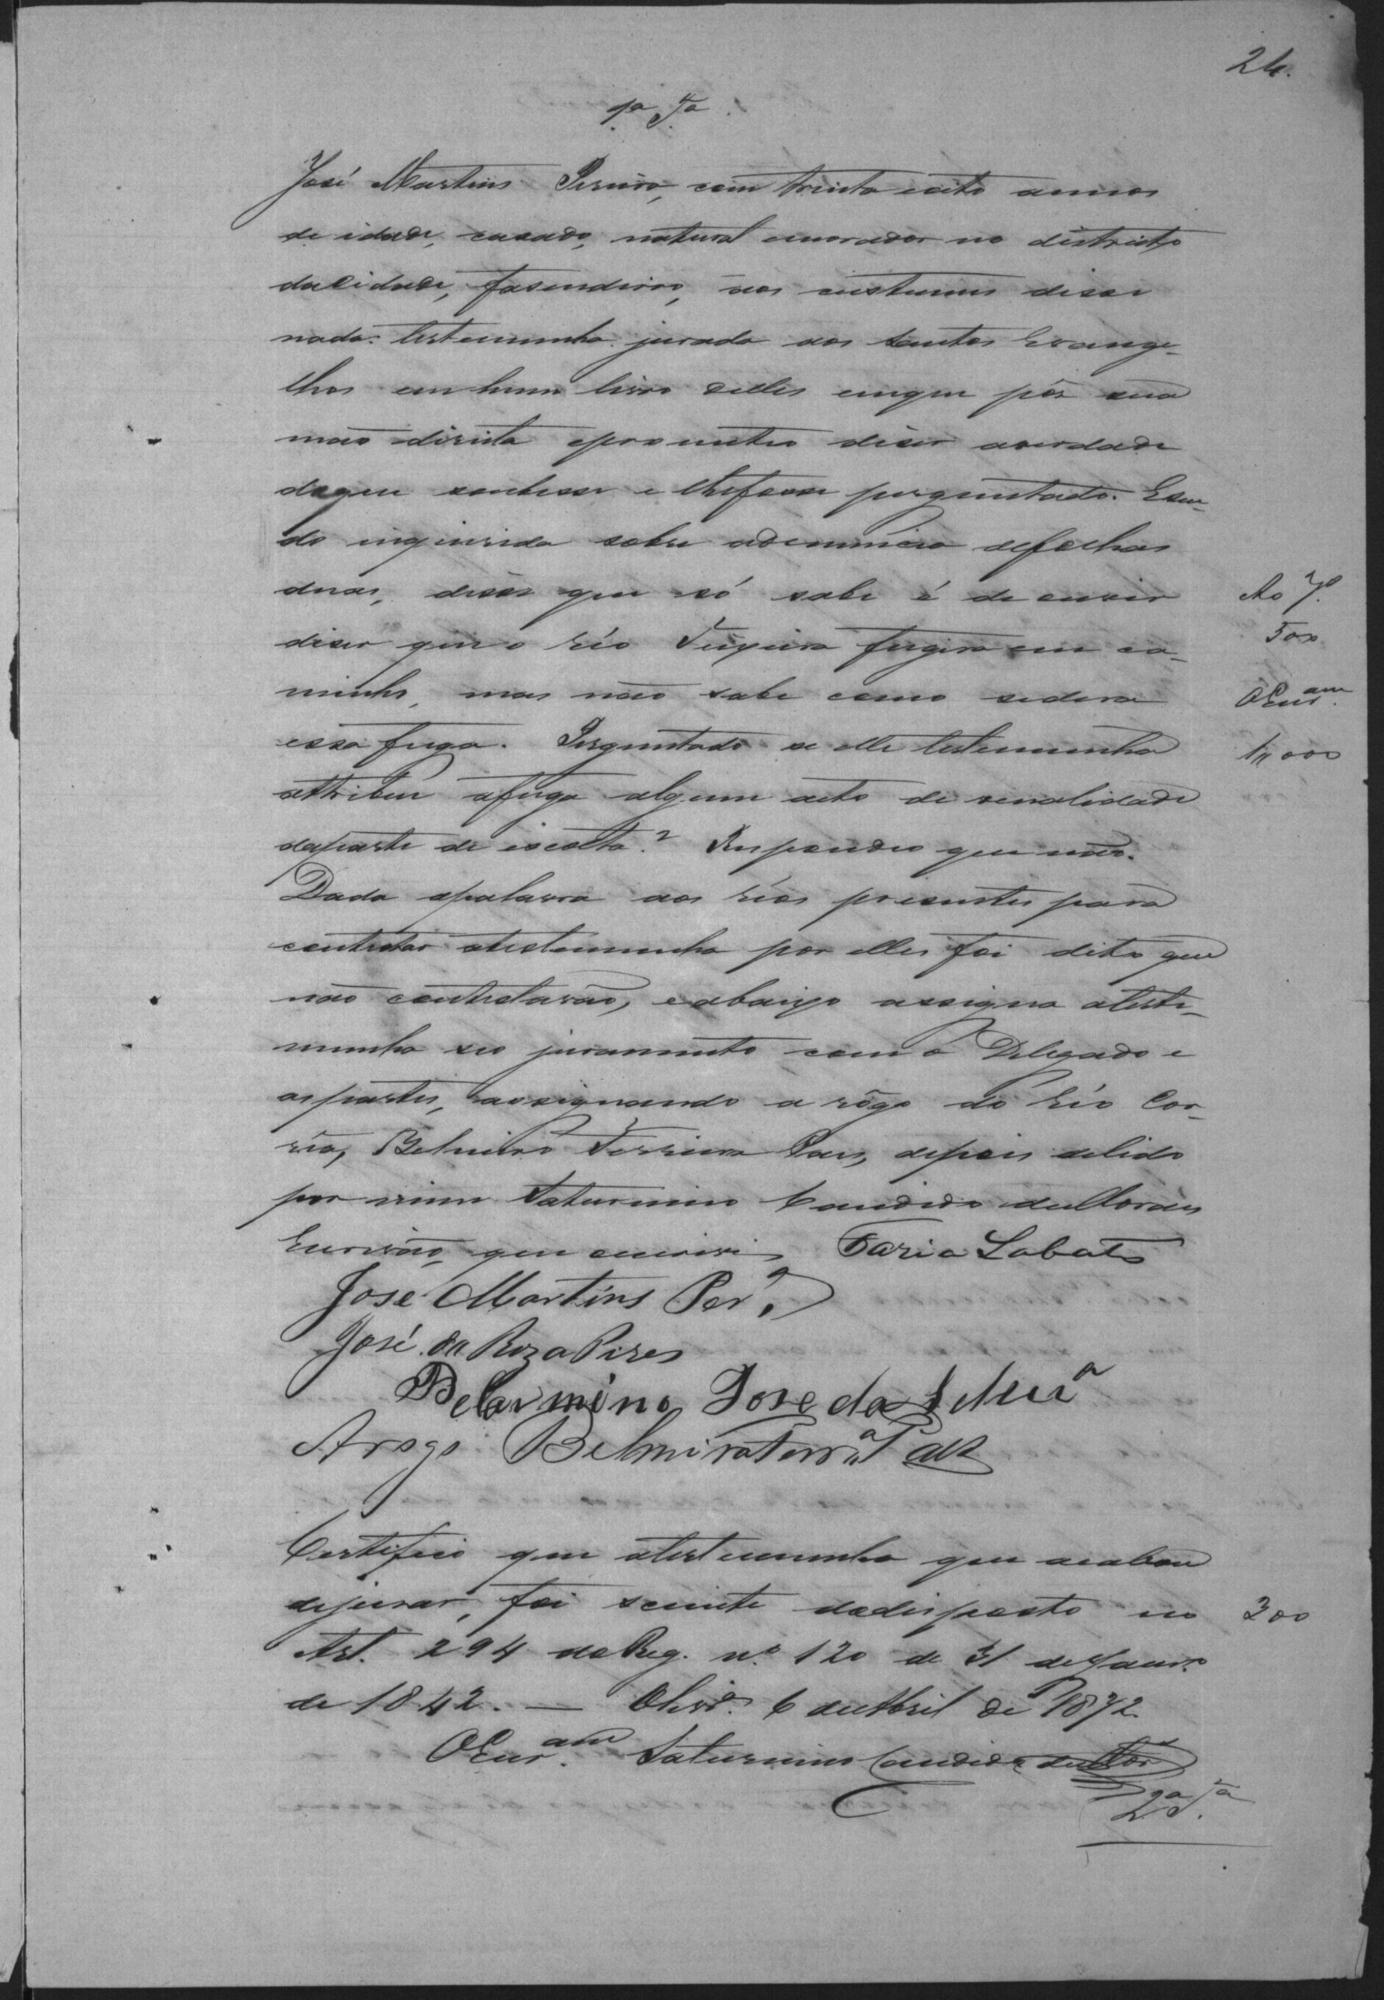 24.
1ª Tª
José Martins Pereira, com trinta e oito annos
de idade, casado, natural e morador no districto
da cidade, fasendeiro, aos custumes disse
nada. Testemunha jurada aos Santos Evange-
lhos em hum livro delles em que pôs sua
mão direita e prometteo diser a verdade
do que soubesse e lhe fosse perguntado. E sen-
do inquirida sobre a denuncia de folhas
duas, disse que só sabe é de ouvir
Ao Jº
diser que o réo Teixeira fugira em ca-
500
minho, mas não sabe como se dera
O Escr.am
essa fuga. Perguntado se elle testemunha
1#000
attribue a fuga algum acto de venalidade
da parte de escolta? Respondeo que não.
Dada a palavra aos réos presentes para
contestar a testemunha por elles foi dito que
não contestavão, e abaixo assigna a teste-
munha seo juramento com o Delegado e
as partes, assignando a rôgo do réo Cor-
rêa, Belmiro Ferreira Paes, depois de lido
por mim Saturnino Candido de Moraes
Escrivão, que escrevi. Faria Lobato
José Martins Per.ª
José da Roza Pires
Belarmino Jose da Silvrª
Arogo Belmiro Ferrª Paz
Certifico que a testemunha que acabou
de jurar, foi sciente do disposto no
300
Art. 294 do Reg. nº 120 de 31 de Janrº
de 1842. — Olivrª 6 de Abril de 1872
O Escr.am Saturnino Candido de Mor.
2ª Tª